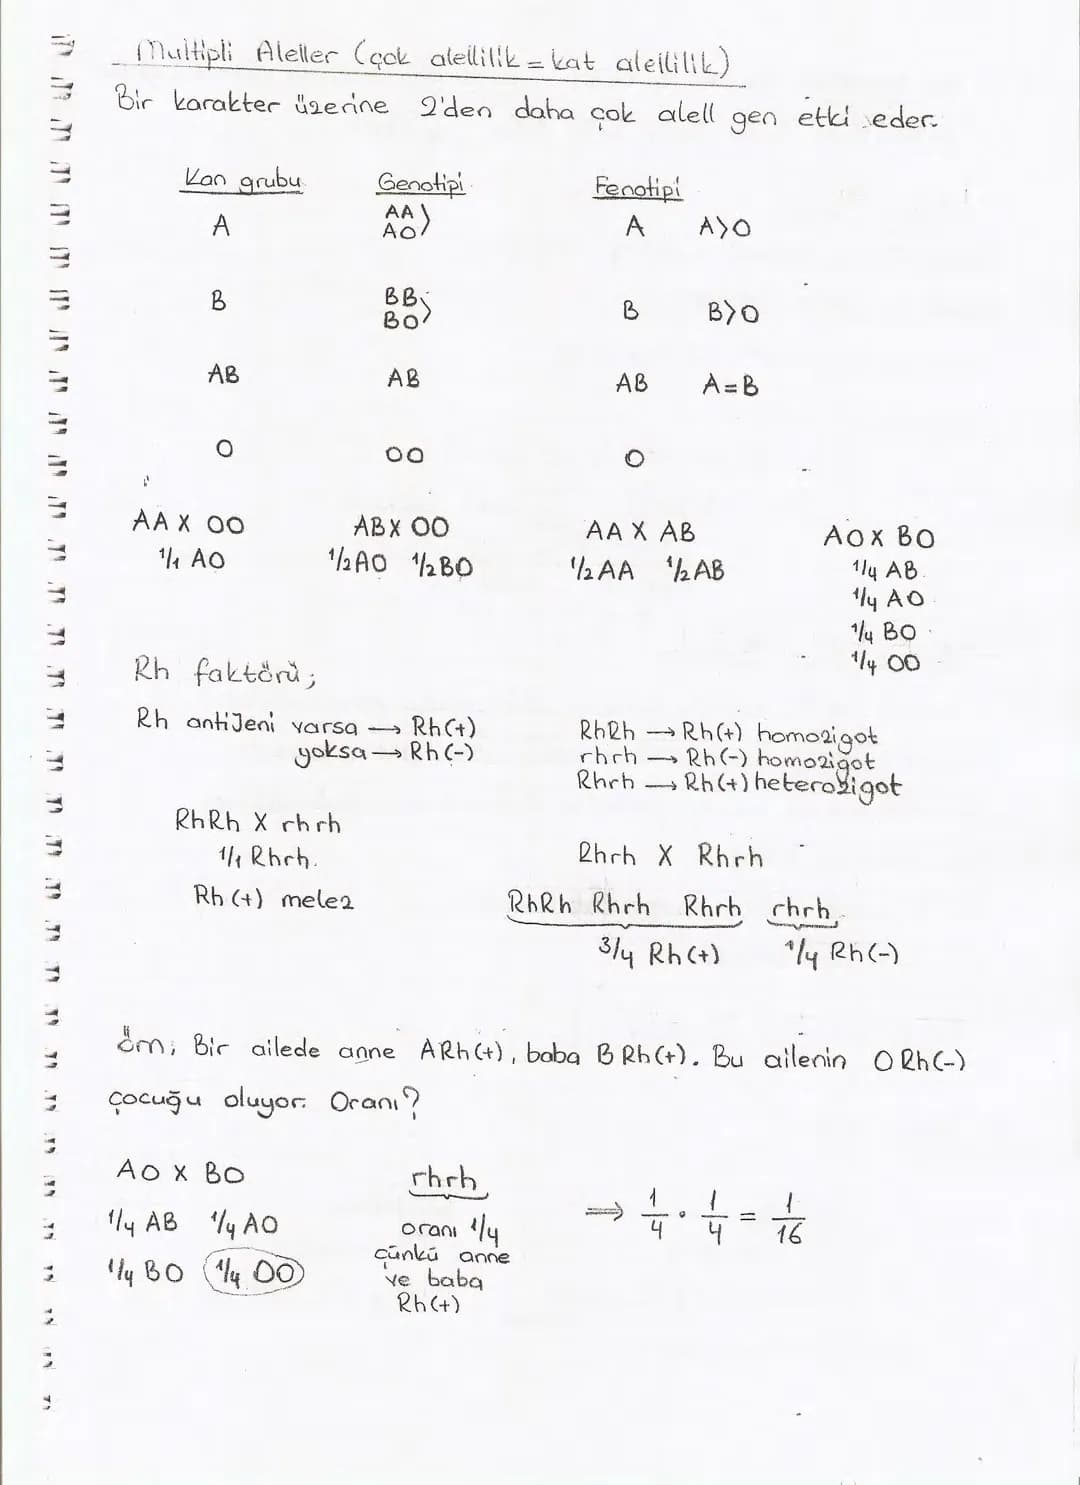 Multipli Aleller (çok alellilik = kat alellilik)
Bir karakter üzerine 2'den daha çok alell gen etki eder.
Kan grubu Genotipi Fenotipi
A AA AO } A A>O
B BB BO } B B>O
AB AB AB A=B
O OO O
AA X OO ABX OO AA X AB AOX BO
1/1 AO 1/2 AO 1/2 BO 1/2 AA 1/2 AB 1/4 AB
1/4 AO
1/4 BO
1/4 OO
Rh faktörü;
Rh antiJeni varsa → Rh(+)
yoksa → Rh(-)
RhRh → Rh(+) homozigot
rhrh → Rh(-) homozigot
Rhrh → Rh(+) heterozigot
RhRh X rhrh
1/1 Rhrh.
Rh (+) melez
Rhrh X Rhrh
RhRh Rhrh Rhrh rhrh
3/4 Rh(+) 1/4 Rh(-)
örn; Bir ailede anne ARh(+), baba B Rh(+). Bu ailenin O Rh(-)
çocuğu oluyor. Oranı?
AO X BO
1/4 AB 1/4 AO
1/4 BO 1/4 OO
rhrh
oranı 1/4
çünkü anne
ve baba
Rh(+)
⇒ 1/4 . 1/4 = 1/16